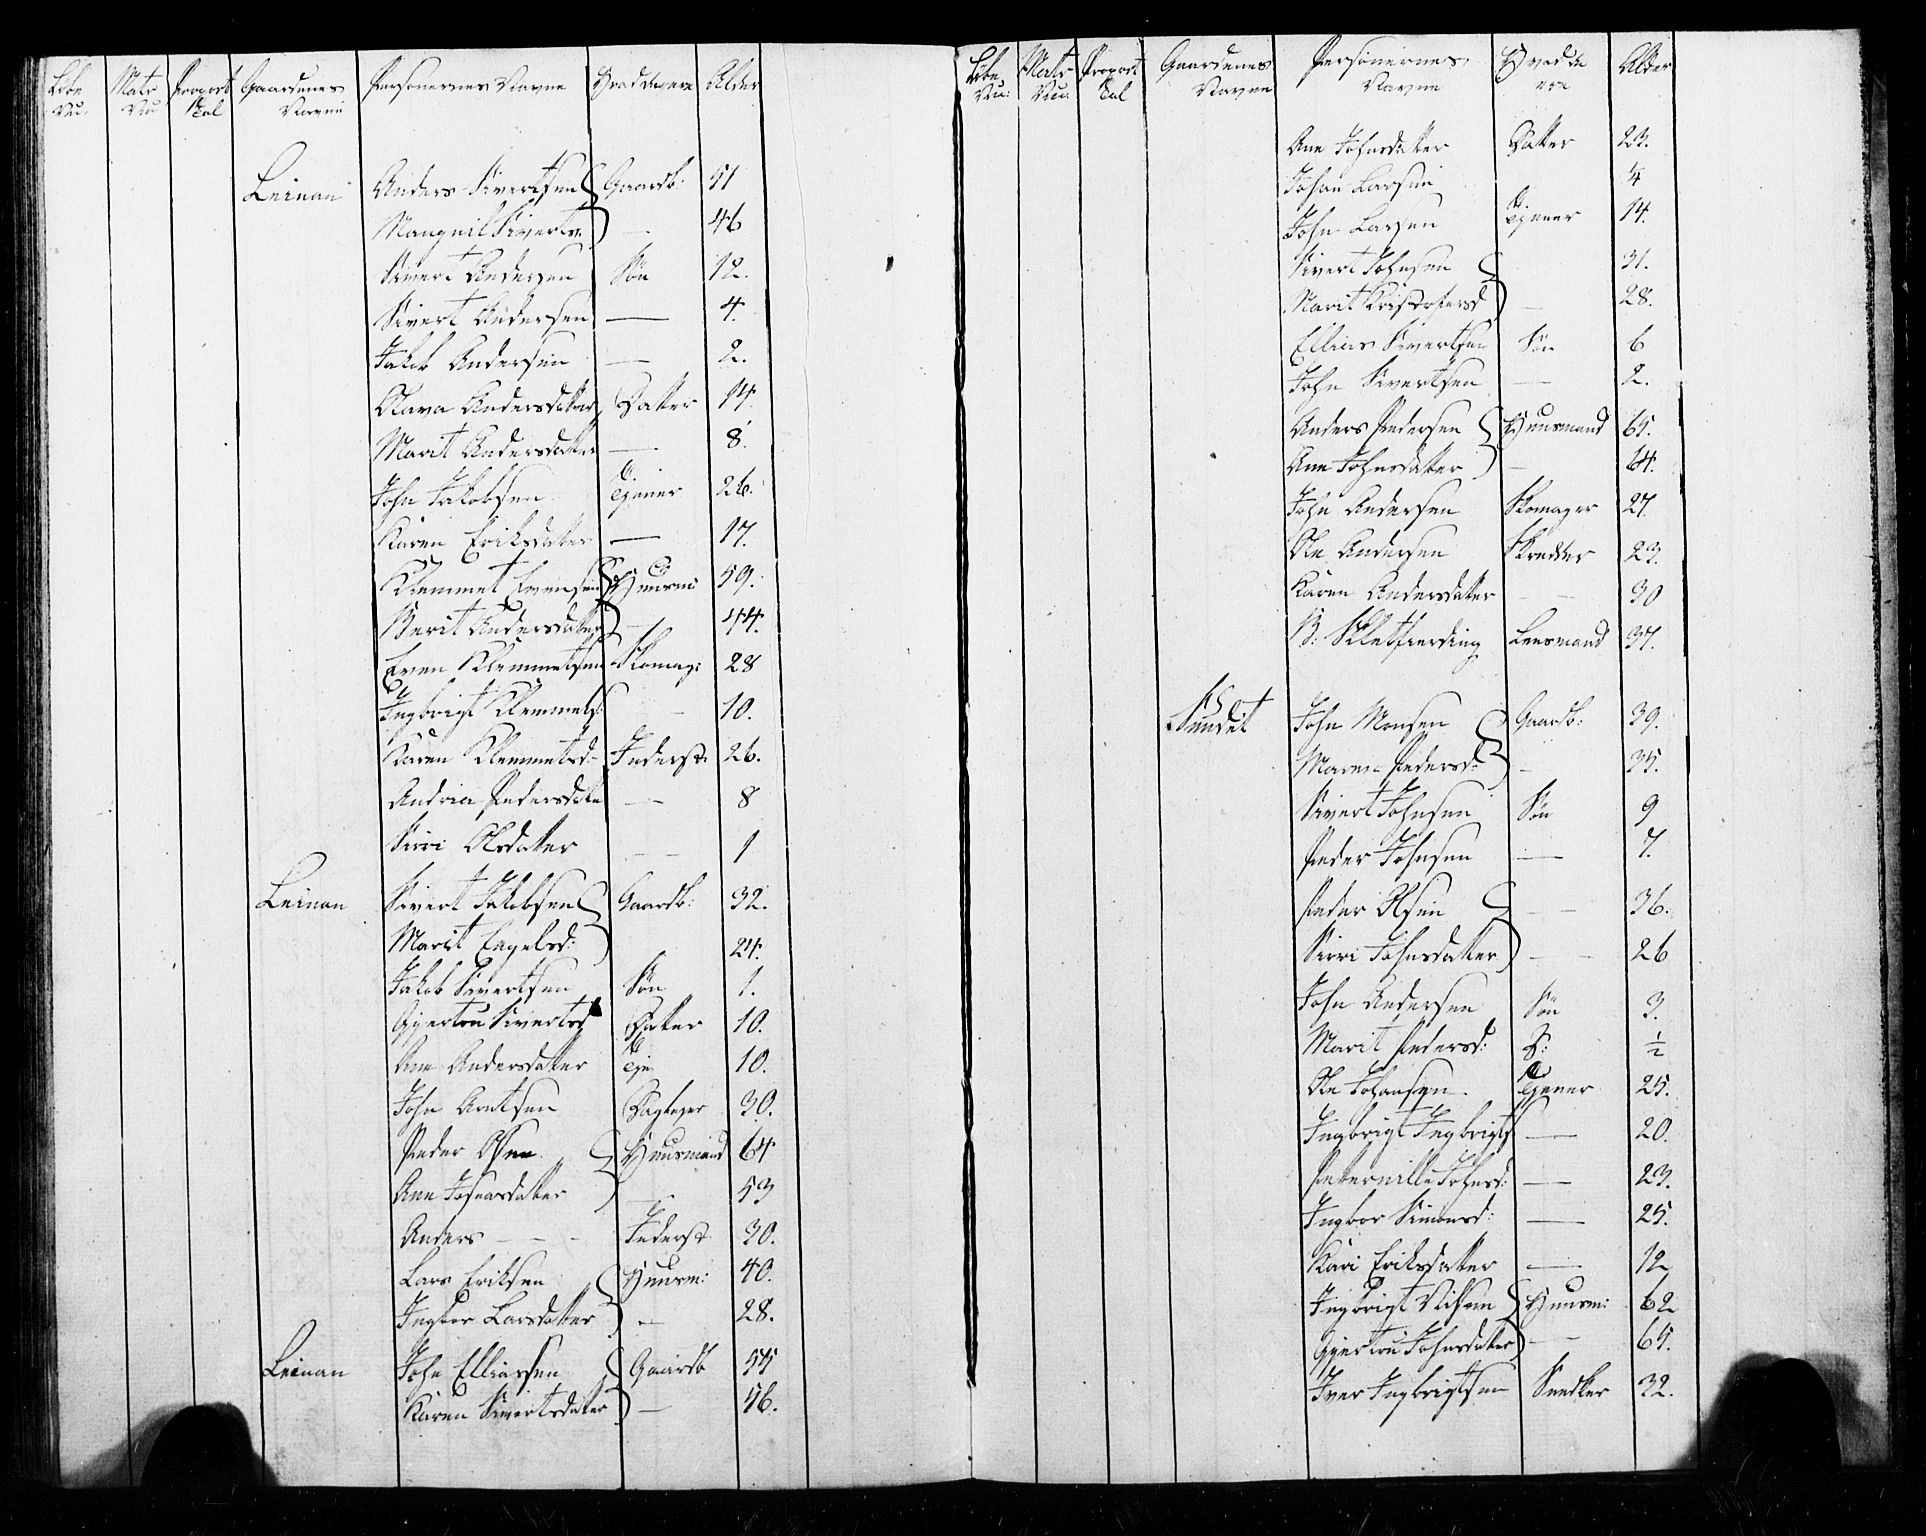 Løbe Nu: Matr Nu Proport Tal Gaardenes Navne Personernes Navne Hvad de ere Alder
Leinan Anders Sivertsen Gaardb: 51
Mangnil Sivertsd — 46
Sivert Andersen Søn 12.
Sivert Andersen — 4.
Jakob Andersen — 2.
Olava Andersdatter Datter 14.
Marit Andersdatter — 8.
John Jakobsen Tjener 26.
Karen Eriksdatter — 17.
Klemmet Evensen Huusm: 59.
Berit Andersdatter — 44.
Even Klemmetsen Skomag: 28
Ingbrigt Klemmets: — 10.
Karen Klemmetsd: Inderst: 26.
Andria Pedersdatter — 8
Sirri Olsdatter — 1
Leinan Sivert Jakobsen Gaardb: 32.
Marit Engelsd: 24.
Jakob Sivertsen Søn 1.
Gjertru Sivertsd Datter 10.
Ane Andersdatter Tje 10.
John Arntsen Dagleier 30.
Peder Olsen Huusmand 64
Ane Johnsdatter — 53
Anders — — Inderst 30.
Lars Eriksen Huusm: 40.
Ingbor Larsdatter — 28.
Leinan John Elliassen Gaardb 55
Karen Sivertsdatter — 56.
Løbe Nu: Matr Nu: Proport Tal Gaardenes Navne Personernes Navne Hvad de ere Alder
Ane Johnsdatter Datter 23.
Johan Larsen 4
John Larsen Tjener 14.
Sivert Johnsen 31.
Marit Kristofersd — 28.
Ellias Sivertsen Søn 6
John Sivertsen — 2.
Anders Pedersen Huusmand 65.
Ane Johnsdatter — 64.
John Andersen Skomager 27.
Ole Andersen Skredder 23.
Karen Andersdatter — 30
B: Sletfierding Lensmand 37.
Sundet John Monsen Gaardb: 39.
Maren Pedersd: — 35.
Sivert Johnsen Søn 9
Peder Johnsen — 7.
Peder Olsen — 36.
Sirri Johnsdatter — 26
John Andersen Søn 3.
Marit Pedersd: D: ½
Ole Johansen. Tjener 25.
Ingbrigt Ingbrigts — 20.
Peternille Johnsd: — 23.
Ingbor Simonsd: — 25.
Kari Eriksdatter — 12
Ingbrigt Nilsen Huusm: 62
Gjertru Johnsdatter — 65.
Iver Ingbrigtsen Snedker 32.